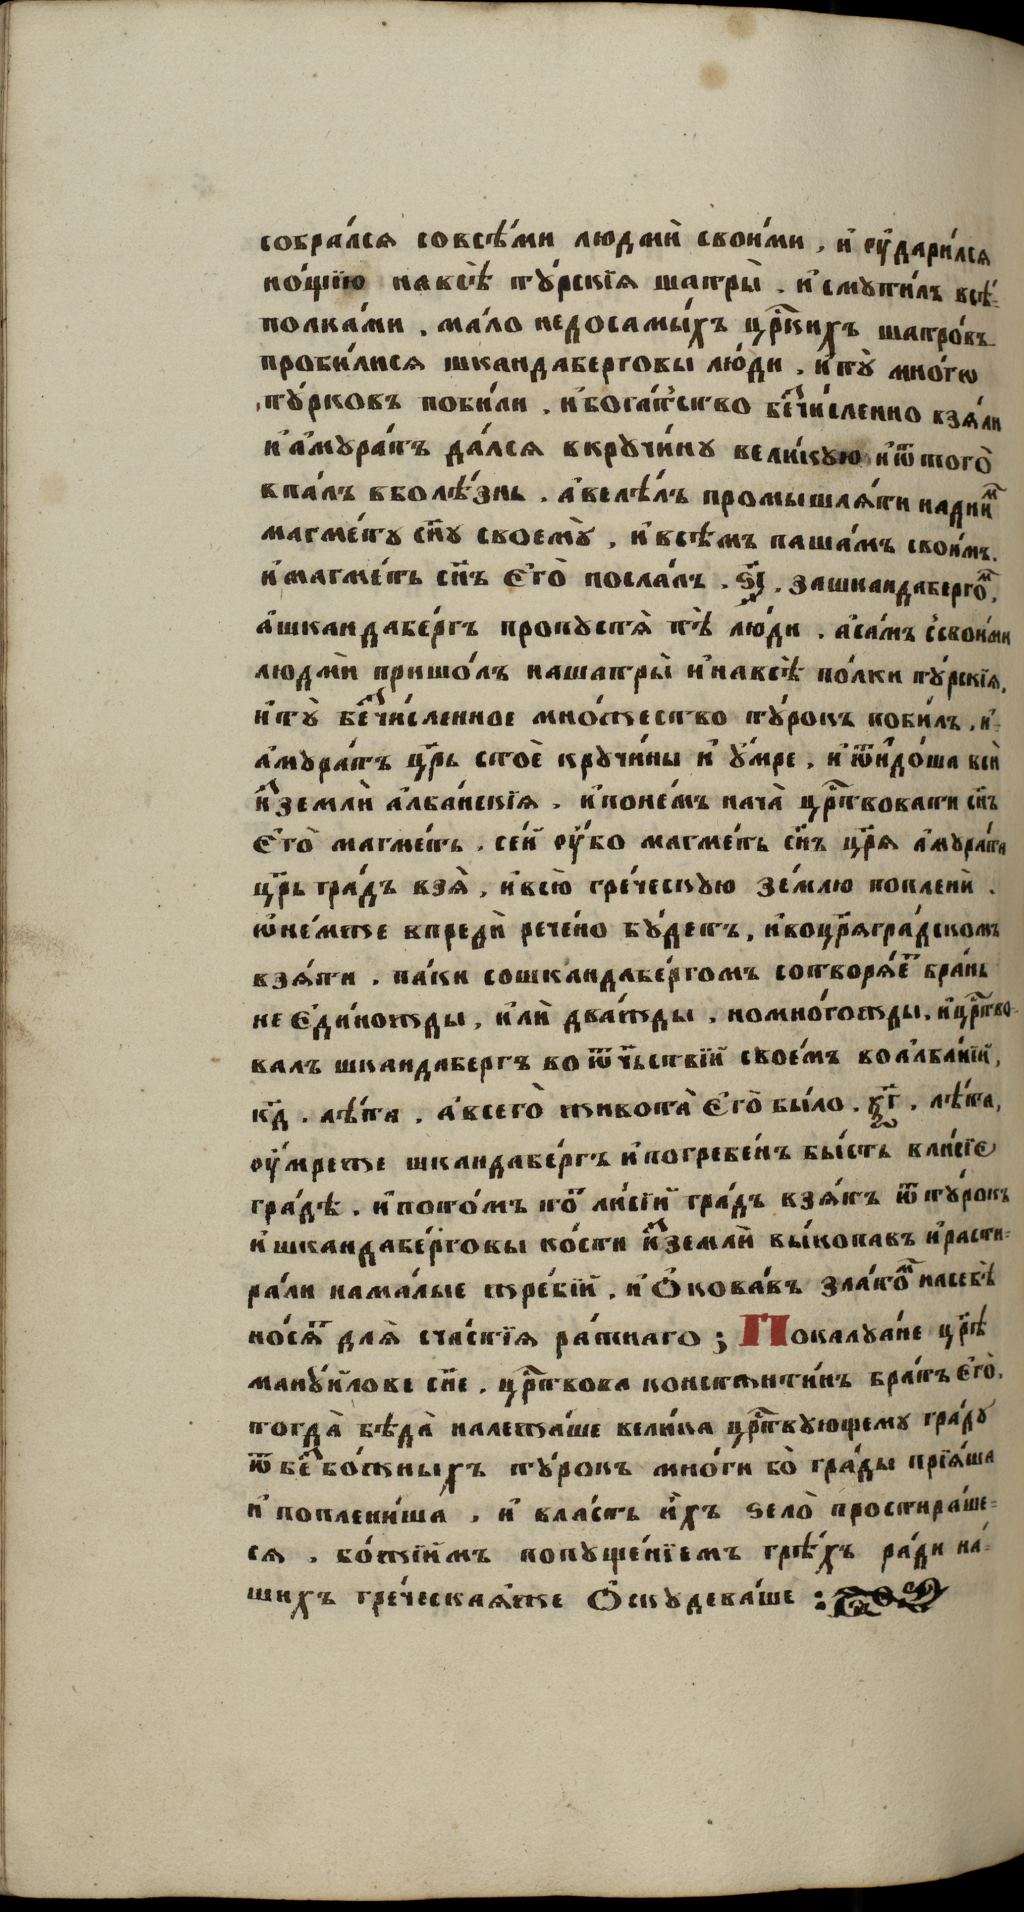 собра́лсѧ совсѣ́ми людмѝ свои́ми , и҆ оу҆дари́лсѧ
но́щїю навсѣ̀ ту́рскїѧ шатры̀ . и҆смути́лъ всѣ́-
полка́ми . ма́ло недосамы́хъ цр҃кихъ шатро́въ
проби́лисѧ шкандаберговы лю́ди , и҆тꙋ̀ мно́гѡ
ту́рковъ поби́ли , и҆бога́тство беⷥчи́сленно взѧ́ли
и҆а҆мура́тъ да́лсѧ вкручи́ну вели́кую и҆ѿтого̀
впа́лъ вболѣ́знь . а҆велѣ́лъ промышлѧ́ти надни́ⷨ
магме́ту сн҃у своемꙋ̀ , и҆всѣ́мъ паша́мъ свои́мъ .
и҆магме́тъ сн҃ъ є҆го̀ посла́лъ . ѕ҃і . зашкандаберго́ⷨ ,
а҆шкандабе́ргъ пропустѧ̀ тѣ̀ лю́ди . а҆са́мъ с҆свои́ми
людми̇̀ пришо́лъ нашатры̀ и҆навсѣ̀ по́лки ту́рскїѧ ,
и҆тꙋ̀ беⷥчи́сленное мно́жество ту́рокъ поби́лъ , и҆-
а҆мура́тъ цр҃ь стоѐ кручи́ны и҆ у҆́мре , и҆ѿидо́ша всѝ
иⷥземлѝ а҆лба́нскїѧ . и҆поне́мъ нача̀ цр҃твовати сн҃ъ
є҆го̀ магме́тъ . се́й оу҆́бо магме́тъ сн҃ъ цр҃ѧ а҆мура́та
цр҃ь гра́дъ взѧ̀ , и҆всю̀ гре́ческую зе́млю поплени̇̀ .
ѡ҆не́мже впредѝ рече́но бу́детъ , и҆воцр҃ѧгра́дскомъ
взѧ́ти . па́ки сошкандабе́ргомъ сотворѧ́еⷮ бра́нь
не є҆ди́ножды , и҆лѝ два́жды . номно́гожды . и҆цр҃тво-
валъ шкандабергъ во ѿч҃ьствїй свое́мъ воа҆лба́нїй ,
к҃д . лѣ́та . а҆всего̀ живота̀ є҆го̀ бы́ло . ѯ҃г . лѣ́та ,
оу҆́мреже шкандабе́ргъ и҆погребе́нъ бы́сть вли́сїе
гра́дѣ . и҆пото́мъ то́й ли́сїй гра́дъ взѧ́тъ ѿ ту́рокъ
и҆шкандабе́рговы ко́сти иⷥземлѝ вы́копавъ и҆расти-
ра́ли нама́лые жре́бїй , и҆ ѻ҆кова́въ зла́тоⷨ насебѣ̀
но́сѧⷮ длѧ̀ сча́стїѧ ра́тнаго ; Покалуа́не цр҃ѣ
мануи́лове сн҃е . цр҃твова констѧнти́нъ бра́тъ є҆го̀ .
тогда̀ бѣда̀ належа́ше велика цр҃твующему гра́ду
ѿ беⷥбо́жныхъ ту́рокъ мно́ги бо̀ гра́ды прїѧ́ша
и҆ поплени́ша , и҆ вла́сть и҆́хъ ѕело̀ простира́ше-
сѧ . бо́жїимъ попуще́нїемъ грѣ́хъ ра́ди на́-
шихъ гре́ческаѧ́же ѻ҆скудева́ше :